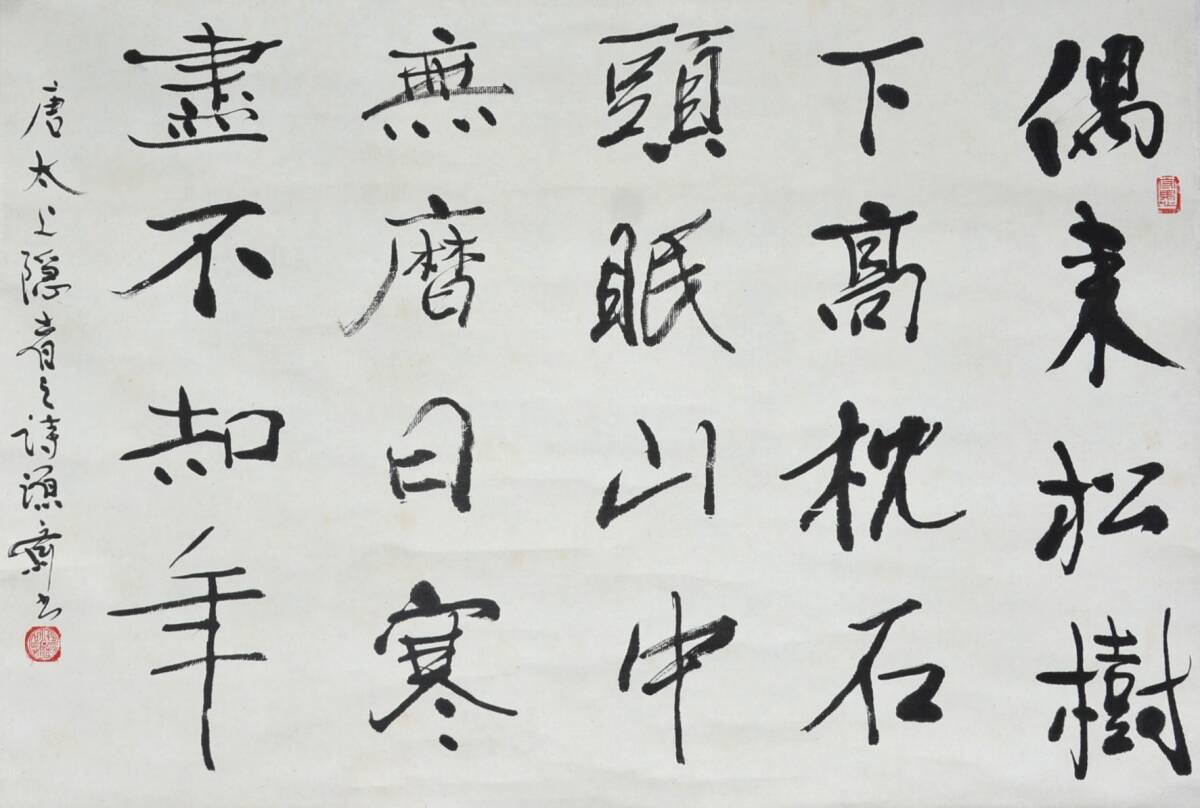 偶来松樹
下高枕石
頭眠山中
無曆日寒
盡不知年
唐太上隱者之詩源齋书